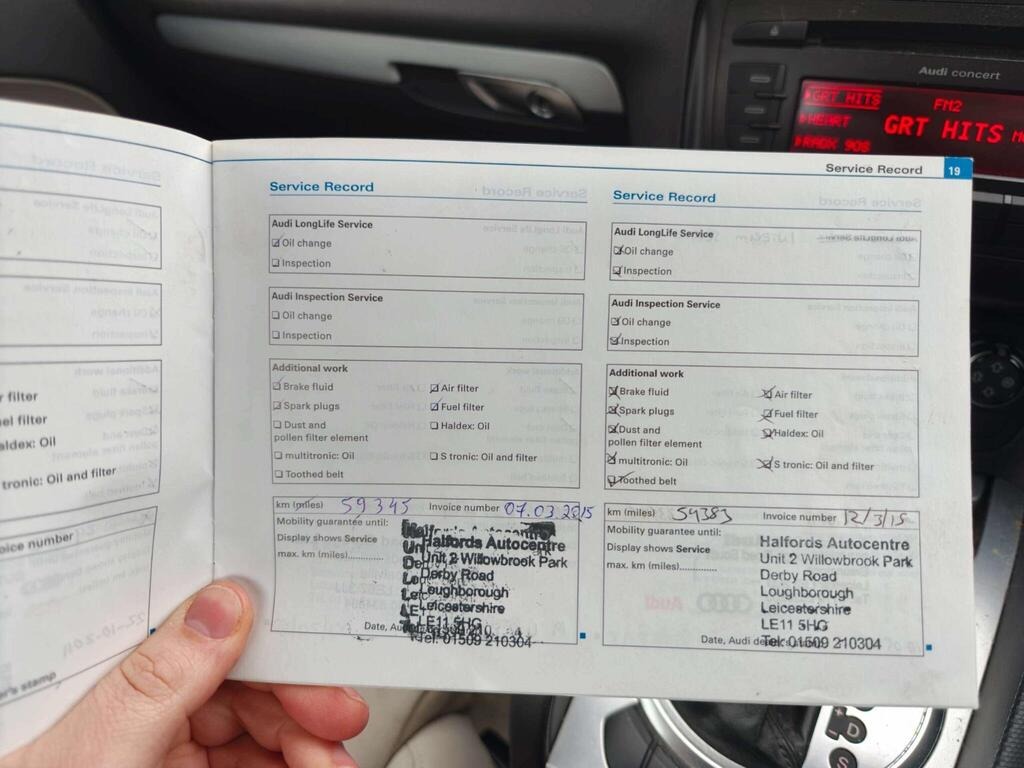 Audi concert
GRT HITS
FM2
HEART
GRT HITS
RADX 90S
Service Record 19
r filter
el filter
aldex: Oil
tronic: Oil and filter
voice number
22-10-2014
er's stamp
Service Record
Audi LongLife Service
Oil change
Inspection
Audi Inspection Service
Oil change
Inspection
Additional work
Brake fluid
Air filter
Spark plugs
Fuel filter
Dust and
pollen filter element
Haldex: Oil
multitronic: Oil
S tronic: Oil and filter
Toothed belt
km (miles) 59345 Invoice number 07.03.2015
Mobility guarantee until:
Display shows Service
max. km (miles)..............
Halfords Autocentre
Unit 2 Willowbrook Park
Derby Road
Loughborough
Leicestershire
LE11 5HG
Tel: 01509 210304
Service Record
Audi LongLife Service
Oil change
Inspection
Audi Inspection Service
Oil change
Inspection
Additional work
Brake fluid
Air filter
Spark plugs
Fuel filter
Dust and
pollen filter element
Haldex: Oil
multitronic: Oil
S tronic: Oil and filter
Toothed belt
km (miles) 59383 Invoice number 12/3/15
Mobility guarantee until:
Display shows Service
max. km (miles)..............
Halfords Autocentre
Unit 2 Willowbrook Park
Derby Road
Loughborough
Leicestershire
LE11 5HG
Tel: 01509 210304
Date, Audi
D
S